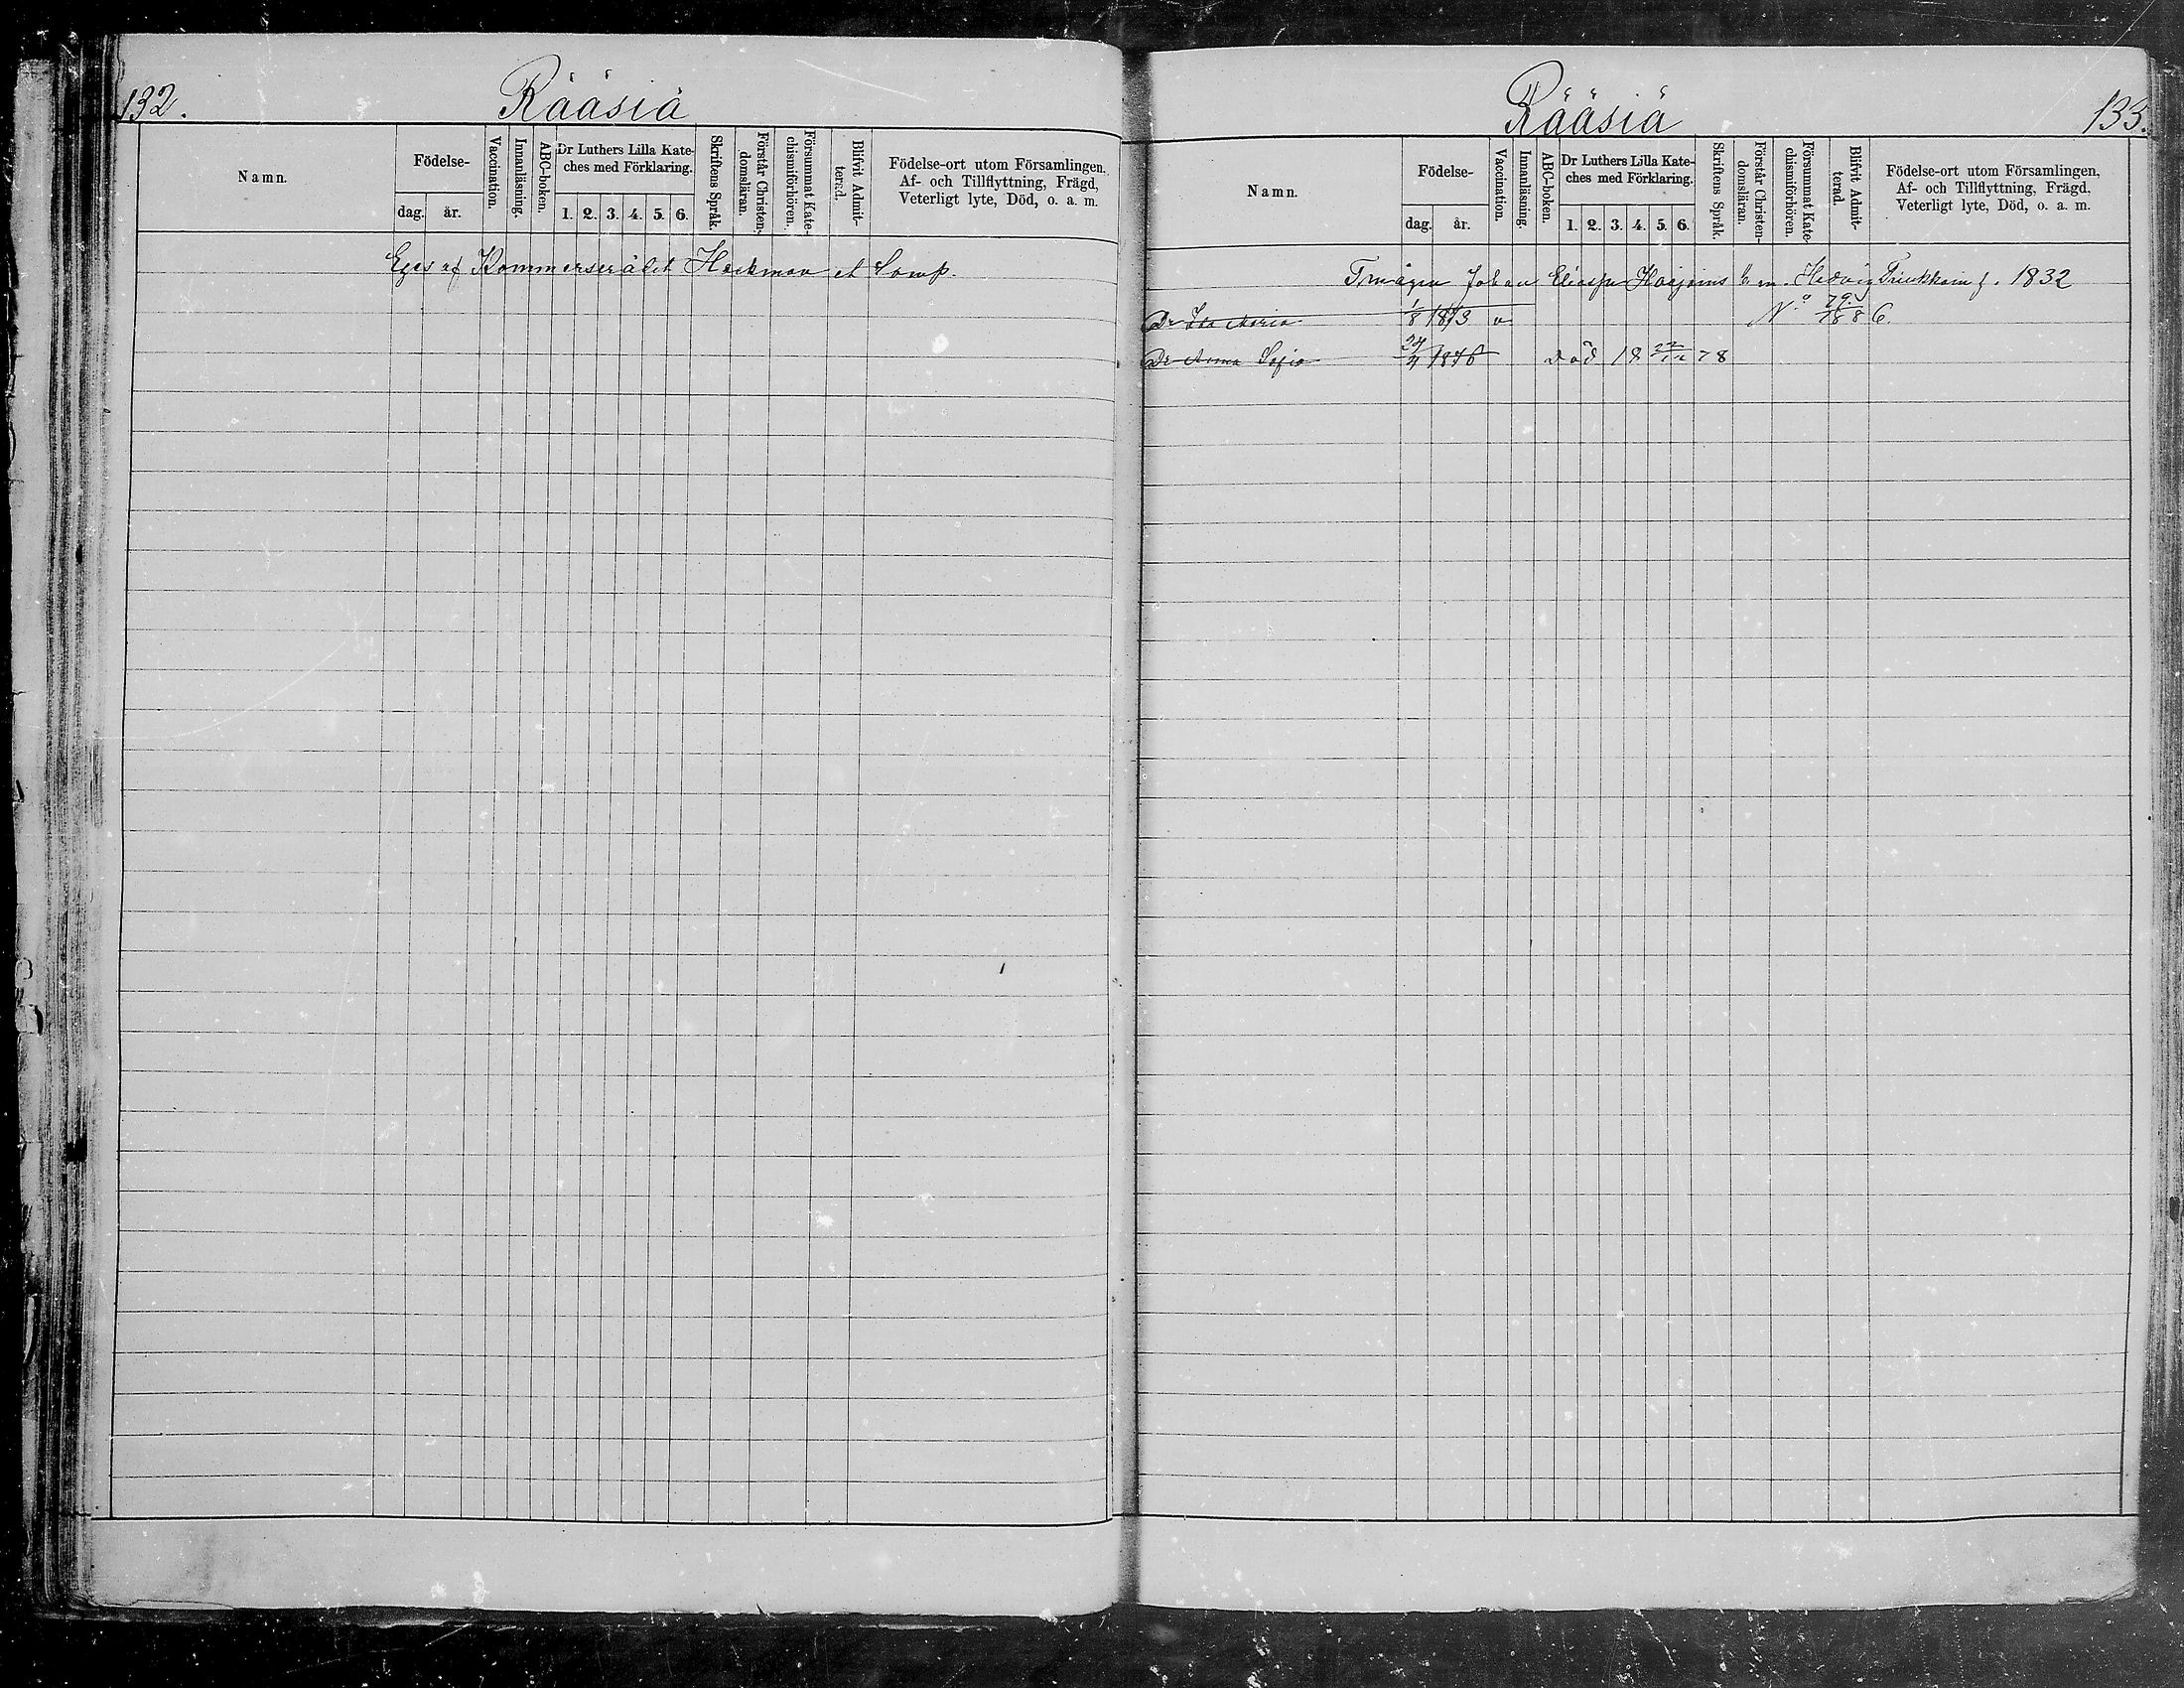 132.
Rääsiä
Namn.
Födelse-
dag.
år.
Vaccination.
Innanläsning.
ABC-boken.
Dr Luthers Lilla Kate-
ches med Förklaring.
1. 2. 3. 4. 5. 6.
Skriftens Språk.
Förstår Christen-
domsläran.
Försummat Kate-
chismiförhören.
Blifvit Admit-
terad.
Födelse-ort utom Församlingen,
Af- och Tillflyttning, Frägd,
Veterligt lyte, Död, o. a. m.
Eges af Kommerserådet Hackman et Komp.
Rääsiä
133.
Namn.
Födelse-
dag.
år.
Vaccination.
Innanläsning.
ABC-boken.
Dr Luthers Lilla Kate-
ches med Förklaring.
1. 2. 3. 4. 5. 6.
Skriftens Språk.
Förstår Christen-
domsläran.
Försummat Kate-
chismiförhören.
Blifvit Admit-
terad.
Födelse-ort utom Församlingen,
Af- och Tillflyttning, Frägd.
Veterligt lyte, Död, o. a. m.
Johan h. m. Hedvig f. 1832
Dr Ida Maria 1/8 1873 v No 79/1886.
Dr Anna Sofia 24/4 1876 Död 18 78